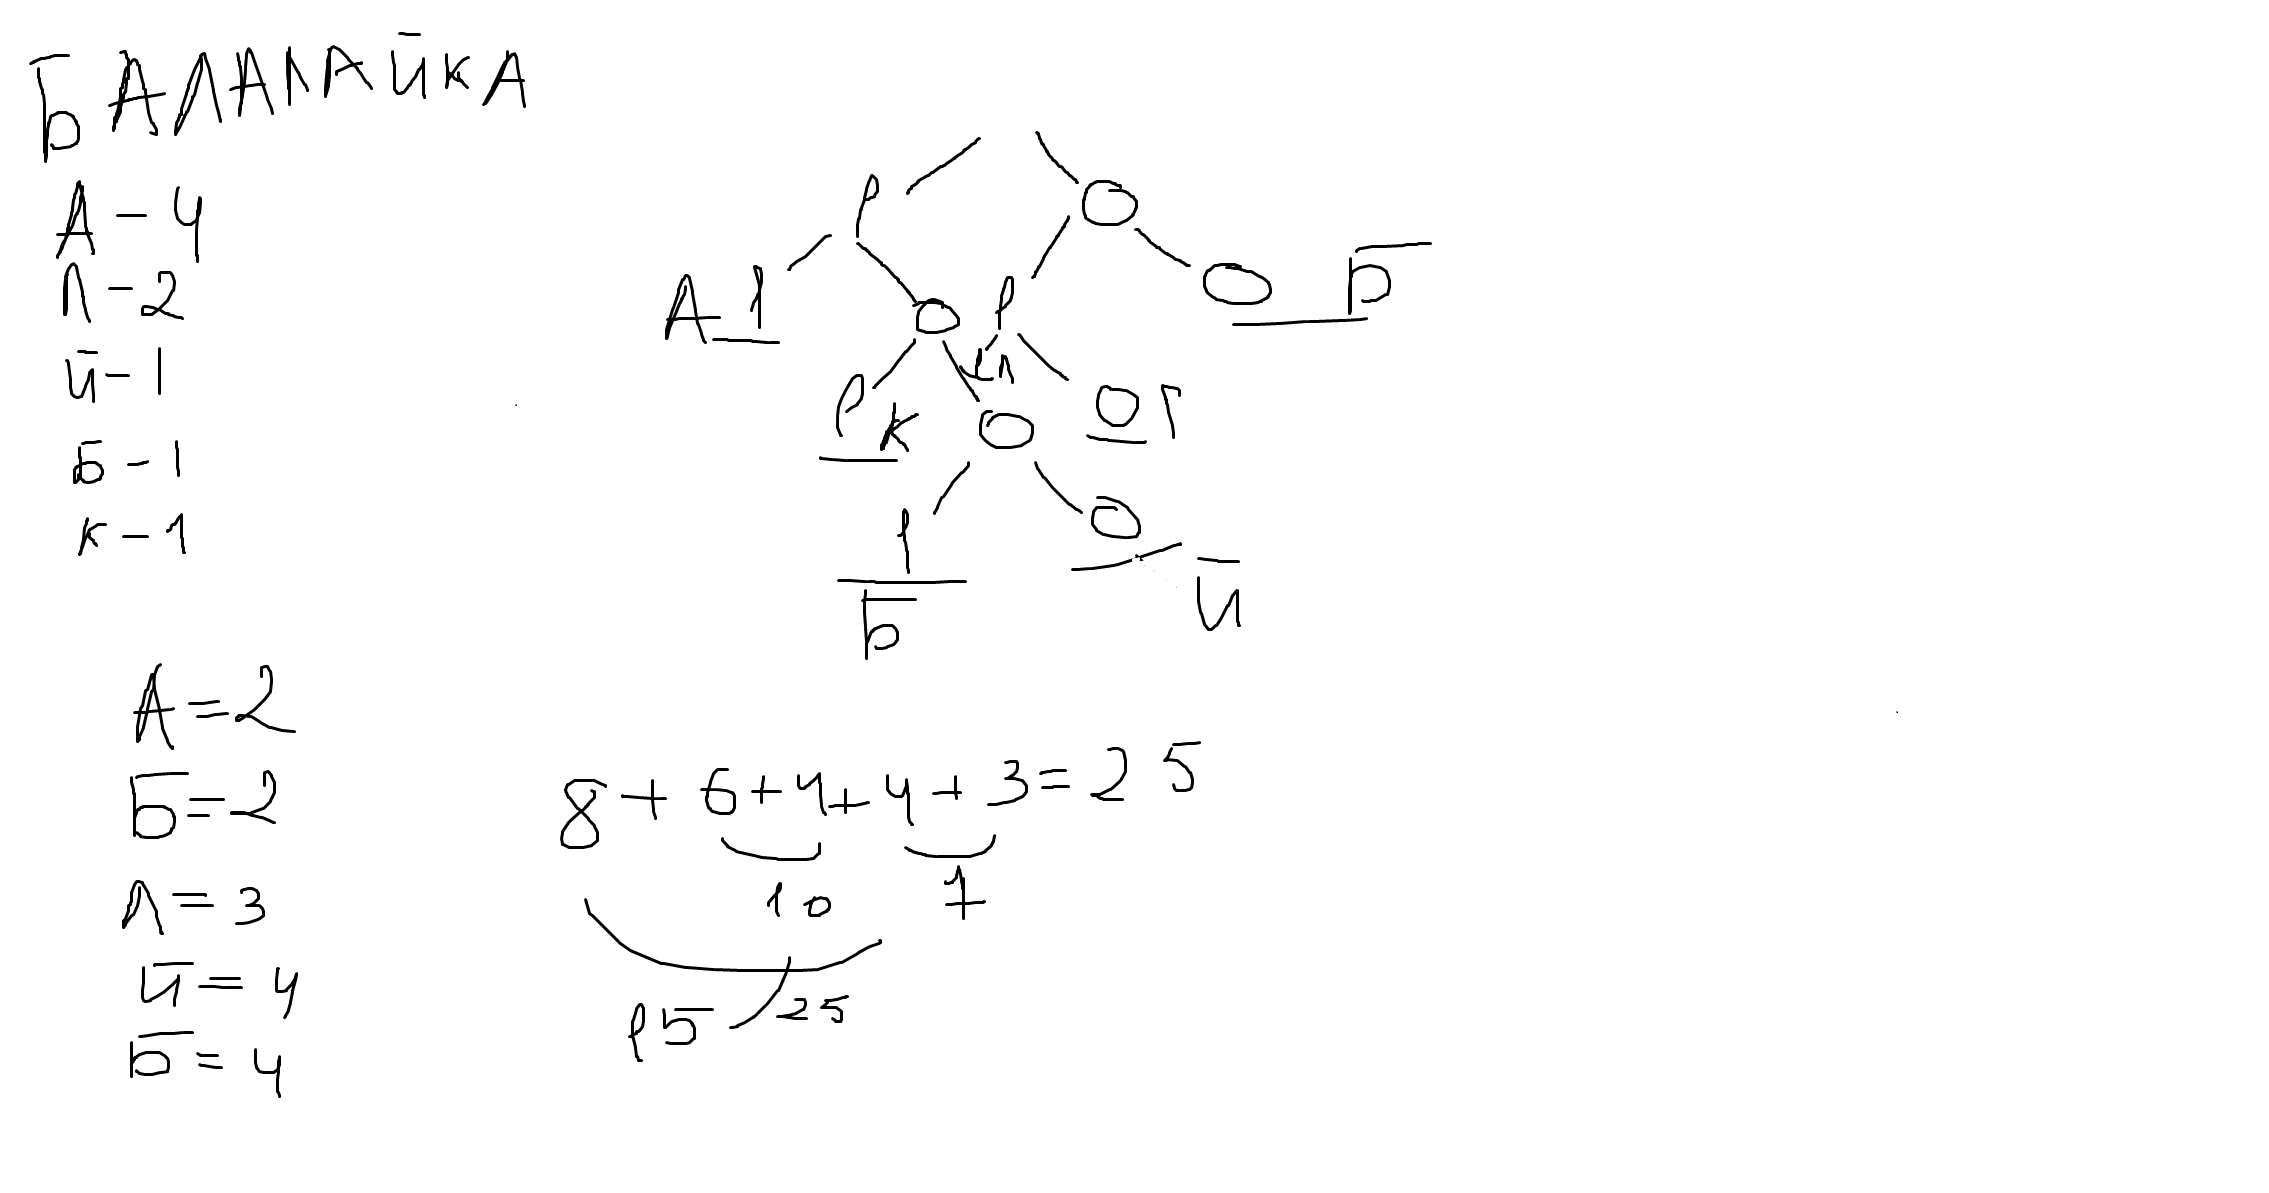 БАЛАЛАЙКА
А - 4
Л - 2
Й - 1
Б - 1
К - 1
1 0
А 1 0 1 0 Б
1 К 0 1 Л 0 Г
1 0
Б Й
А = 2
Б = 2
Л = 3
Й = 4
Б = 4
8 + 6 + 4 + 4 + 3 = 25
10 7
15 25